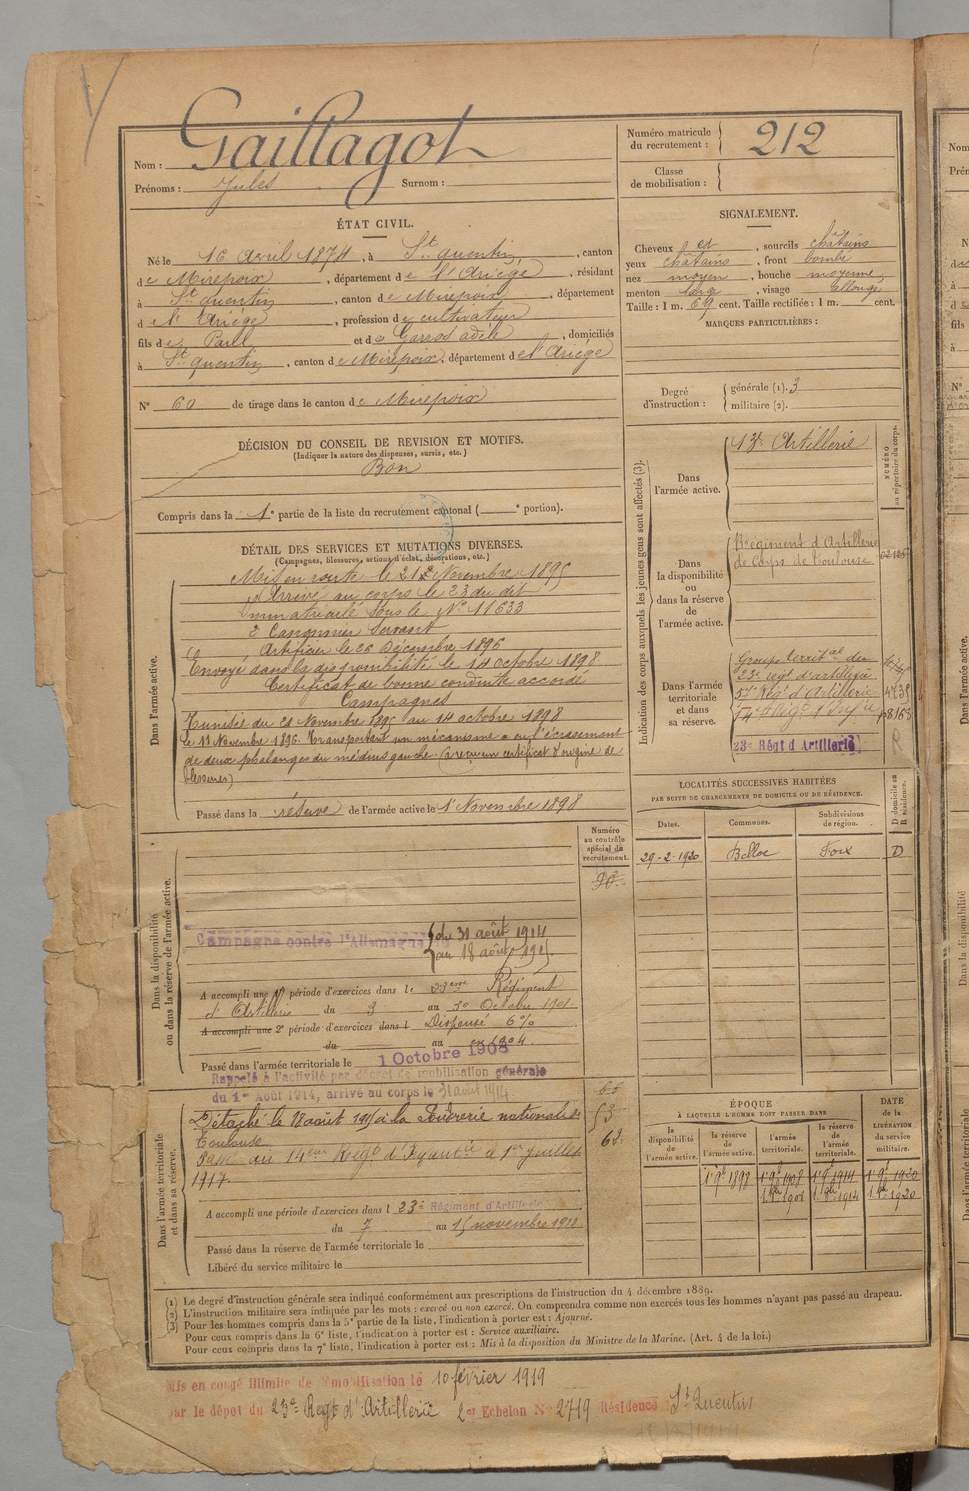 Nom : Gaillagot
Prénoms : Jules Surnom :
Numéro matricule du recrutement : 212
Classe de mobilisation :
ÉTAT CIVIL.
Né le 16 Avril 1874, à St quentin, canton
de Mirepoix, département de l'Ariège, résidant
à St quentin, canton de Mirepoix, département
de l'Ariège, profession de cultivateur
fils de Paul et de adèle, domiciliés
à St quentin, canton de Mirepoix, département de l'Ariège
N° 60 de tirage dans le canton de Mirepoix
SIGNALEMENT.
Cheveux et, sourcils châtains
yeux châtains, front bombé
nez moyen, bouche moyenne
menton large, visage allongé
Taille : 1 m. 69 cent. Taille rectifiée : 1 m. cent.
MARQUES PARTICULIÈRES :
Degré d'instruction : générale (1). 3
militaire (2).
DÉCISION DU CONSEIL DE REVISION ET MOTIFS.
(Indiquer la nature des dispenses, sursis, etc.)
Bon
Compris dans la 1e partie de la liste du recrutement cantonal ( e portion).
DÉTAIL DES SERVICES ET MUTATIONS DIVERSES.
(Campagnes, blessures, actions d'éclat, décorations, etc.)
Dans l'armée active.
Mis en route le 21 Novembre 1895
Arrivé au corps le 23 du dit
immatriculé sous le N° 11633
2e Canonnier Servant
Artificier le 26 Décembre 1896
Envoyé dans la disponibilité le 14 octobre 1898
Certificat de bonne conduite accordé
Campagnes
Tunisie du 21 Novembre 1895 au 14 octobre 1898
le 11 Novembre 1896. Transportant un mécanisme a eu l'écrasement
de deux phalanges du médius gauche (a reçu un certificat d'origine de
blessures)
Passé dans la réserve de l'armée active le 1er Novembre 1898
Indication des corps auxquels les jeunes gens sont affectés (3).
NUMÉRO au répertoire du corps.
Dans l'armée active.
13e Artillerie
Dans la disponibilité ou dans la réserve de l'armée active.
Régiment d'Artillerie
de Corps de Toulouse
Dans l'armée territoriale et dans sa réserve.
Groupe territal du
23e régt d'artillerie
57e Régt d'Artillerie
14e Régt d'Inf
23e Régt d'Artillerie
LOCALITÉS SUCCESSIVES HABITÉES
PAR SUITE DE CHANGEMENTS DE DOMICILE OU DE RÉSIDENCE.
Dates. Communes. Subdivisions de région. D domicile ou R résidence.
29-2-1920 Belloc Foix D
Numéro au contrôle spécial du recrutement.
Dans la disponibilité ou dans la réserve de l'armée active.
Campagne contre l'Allemagne du 31 août 1914
au 18 août 1915
A accompli une 1re période d'exercices dans le 23eme Régiment
d'Artillerie du 3 au 30 Octobre 1901
A accompli une 2e période d'exercices dans l Dispensé 6%
du au en 1904
Passé dans l'armée territoriale le 1 Octobre 1908
Rappelé à l'activité par décret de mobilisation générale
du 1er Août 1914, arrivé au corps le 31 août 1914
Dans l'armée territoriale et dans sa réserve.
Détaché le 18 août 1915 à la Poudrerie nationale de
Toulouse
Passé au 14eme Régt d'Infanterie le 1er juillet
1917.
A accompli une période d'exercices dans l 23e Régiment d'Artillerie
du 7 au 15 novembre 1911
Passé dans la réserve de l'armée territoriale le
Libéré du service militaire le
53
63
ÉPOQUE
À LAQUELLE L'HOMME DOIT PASSER DANS
la disponibilité de l'armée active. la réserve de l'armée active. l'armée territoriale. la réserve de l'armée territoriale. DATE de la LIBÉRATION du service militaire.
1er 9e 1898 1er 9e 1908 1er 9e 1914 1er 9e 1920
(1) Le degré d'instruction générale sera indiqué conformément aux prescriptions de l'instruction du 4 décembre 1889.
(2) L'instruction militaire sera indiquée par les mots : exercé ou non exercé. On comprendra comme non exercés tous les hommes n'ayant pas passé au drapeau.
(3) Pour les hommes compris dans la 5e partie de la liste, l'indication à porter est : Ajourné.
Pour ceux compris dans la 6e liste, l'indication à porter est : Service auxiliaire.
Pour ceux compris dans la 7e liste, l'indication à porter est : Mis à la disposition du Ministre de la Marine. (Art. 4 de la loi.)
Mis en congé illimité de démobilisation le 10 février 1919
par le dépôt du 23e Régt d'Artillerie 2e Echelon N° 2719 Résidence St Quentin